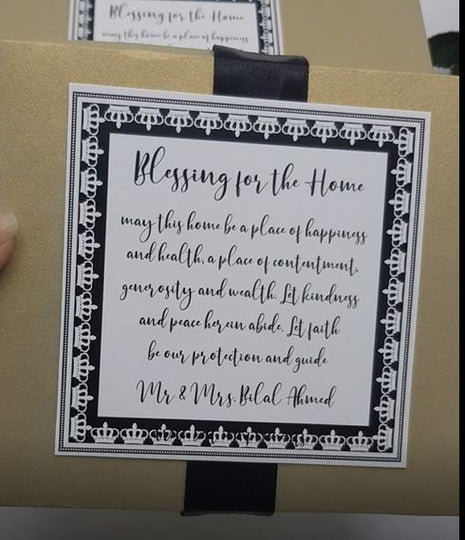 Blessing for the Home
may this home be a place of happiness
Blessing for the Home
may this home be a place of happiness
and health, a place of contentment,
generosity and wealth. Let kindness
and peace herein abide. Let faith
be our protection and guide
Mr & Mrs. Bilal Ahmed